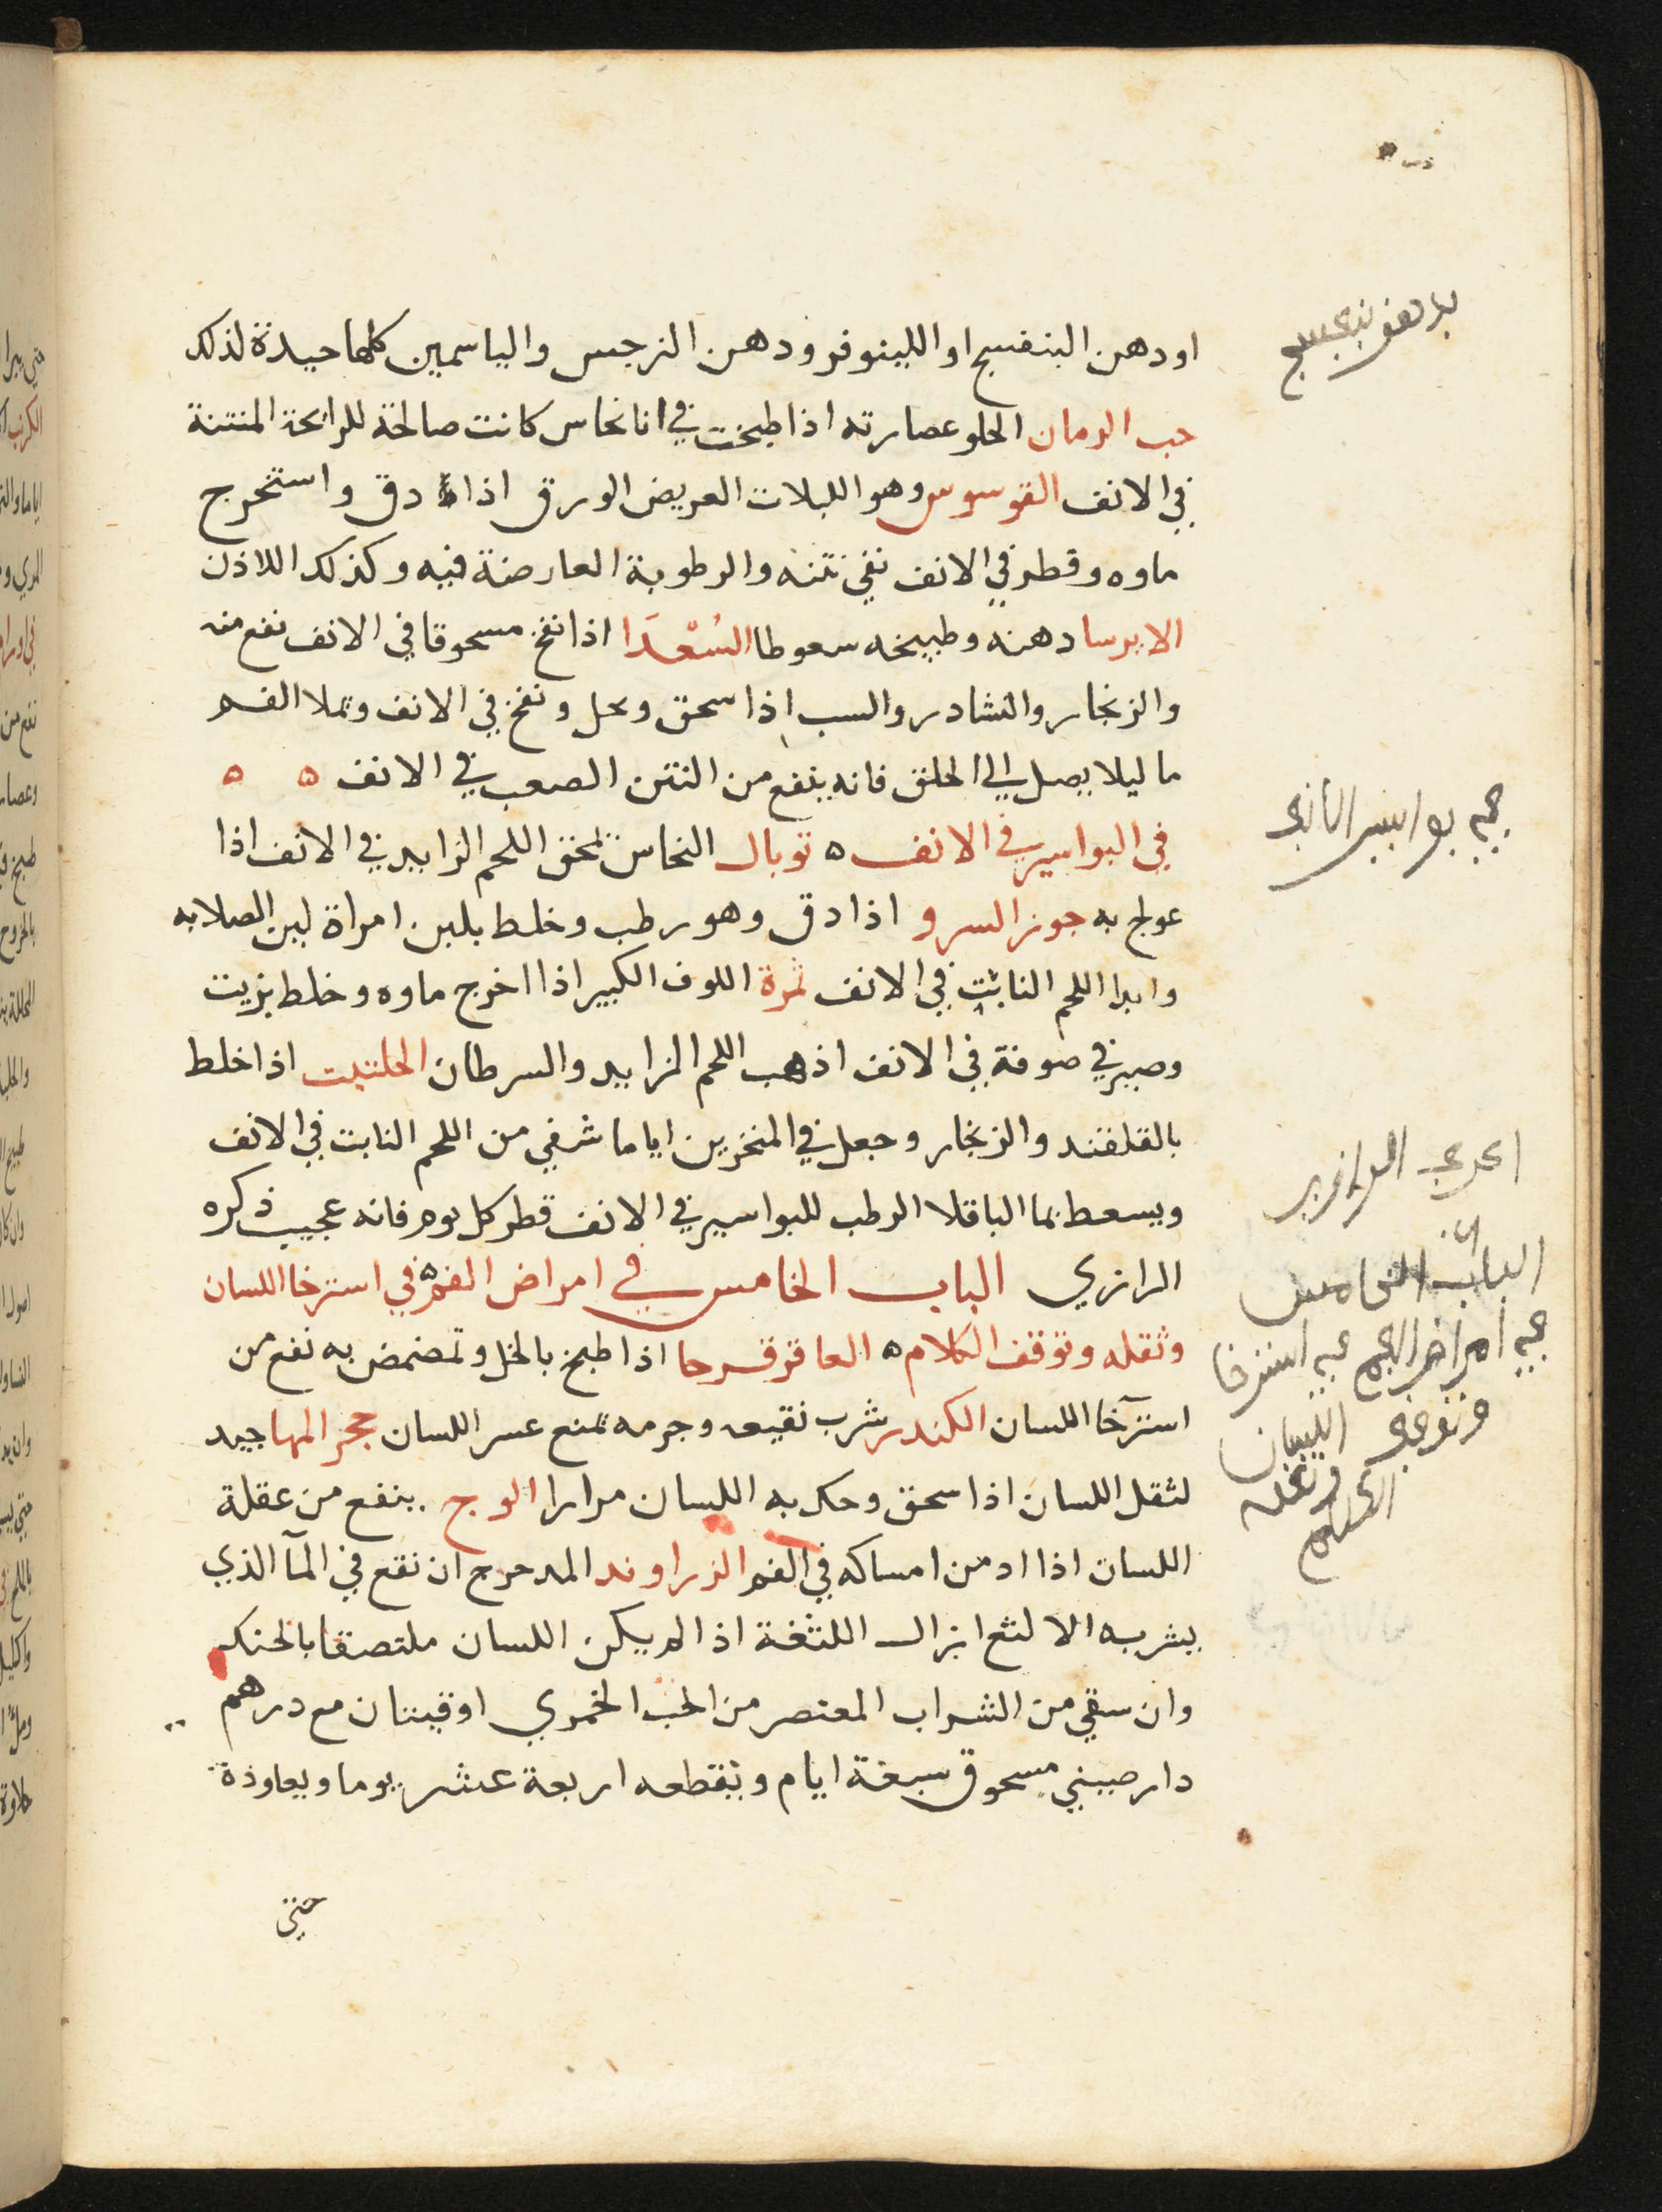 او دهن البنفسج او اللينوفر ودهن النرجس والياسمين كلها جيدة لذلك
حب الرمان الحلو عصارته اذا طبخت في انا نحاس كانت صالحة للرائحة المنتنة
في الانف القوسوس وهو اللبلات العريض الورق اذا دق واستخرج
ماوه وقطر في الانف نفي نتنه والرطوبة العارضة فيه وكذلك اللاذن
الايرسا دهنه وطبيخه سعوطا السُعْدَا اذا نفخ مسحوقا في الانف نفع منه
والزنجار والنشادر والسب اذا سحق ونخل ونفخ في الانف وتملا الفم
ما ليلا يصل الي الحلق فانه ينفع من النتن الصعب في الانف ه ه
في البواسير في الانف ه توبال النحاس تمحق اللحم الزايد في الانف اذا
عولج به جوز السرو اذا دق وهو رطب وخلط بلبن امراة لين الصلابه
وابرا اللحم النابت في الانف ثمرة اللوف الكبير اذا اخرج ماوه وخلط بزيت
وصير في صوفة في الانف اذهب اللحم الزايد والسرطان الحلتيت اذا خلط
بالقلقند والزنجار وجعل في المنخرين اياما شفي من اللحم النابت في الانف
ويسعط بما الباقلا الرطب للبواسير في الانف قطر كل يوم فانه عجيب ذكره
الرازي الباب الخامس في امراض الفم ه في استرخا اللسان
وثقله وتوقف الكلام ه العاقرقرحا اذا طبخ بالخل وتمضمض به نفع من
استرآخا اللسان الكندر شرب نقيعه وجرمه تمنع عسر اللسان حجر المها جيد
لثقل اللسان اذا سحق وحك به اللسان مرارا الوج ينفع من عقلة
اللسان اذا ادمن امساكه في الفم الزراوند المدحرج ان نقع في المآ الذي
يشربه الالثغ ازال اللثغة اذا لم يكن اللسان ملتصقا بالحنك
وان سقي من الشراب المعتصر من الحب الخمري اوقيتان مع درهم
دارصيني مسحوق سبعة ايام وبنقطعه اربعة عشر يوما ويعاوذة
حتي
بواسير الانف
الباب الخامس
في امراض الفم في استرخا
اللسان وثقله
وتوقف
الكلام